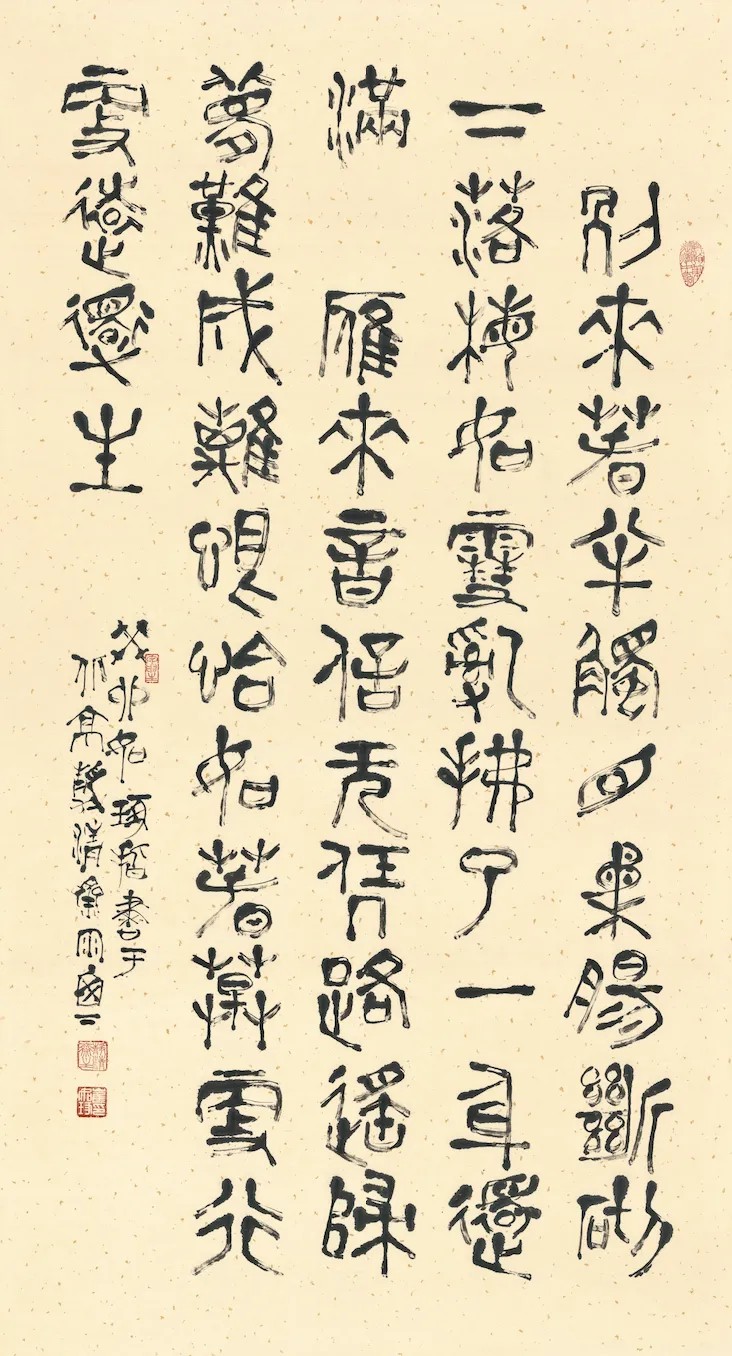 別來春半觸目柔腸斷砌
下落梅如雪亂拂了一身還
滿 雁來音信无凭路遙歸
夢難成離恨恰如春草更行
更遠還生
癸卯 書于